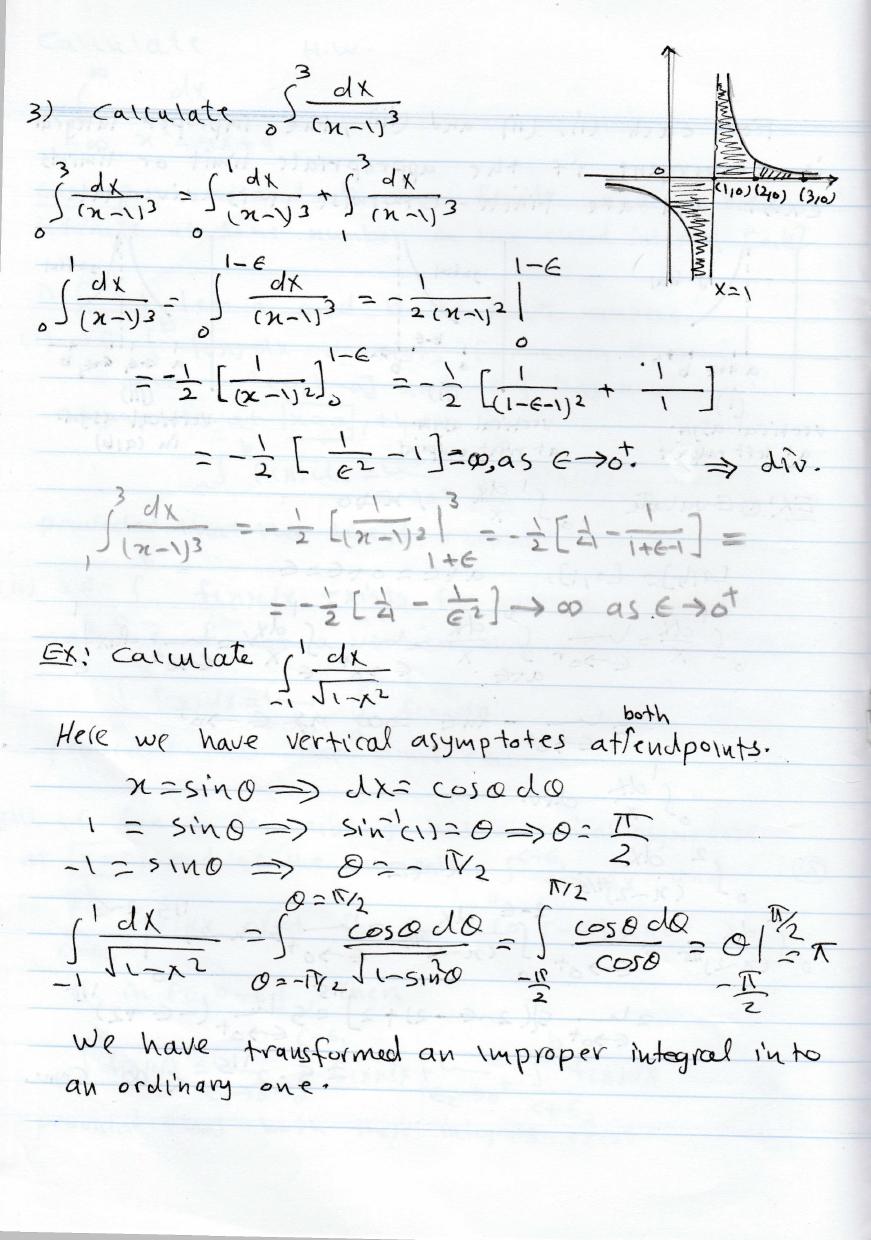 3) Calculate ₀∫³ dx/(x-1)³
0
(1,0) (2,0) (3,0)
x=1
₀∫³ dx/(x-1)³ = ₀∫¹ dx/(x-1)³ + ₁∫³ dx/(x-1)³
₀∫¹ dx/(x-1)³ = ₀∫^(1-ϵ) dx/(x-1)³ = -1/2(x-1)² |₀^(1-ϵ)
= -1/2 [1/(x-1)²]₀^(1-ϵ) = -1/2 [1/(1-ϵ-1)² + 1/1]
= -1/2 [1/ϵ² - 1] = ∞, as ϵ→0⁺. ⇒ div.
₁∫³ dx/(x-1)³ = -1/2 [1/(x-1)² |_(1+ϵ)^3 = -1/2 [1/4 - 1/(1+ϵ-1)] =
= -1/2 [1/4 - 1/ϵ²] → ∞ as ϵ→0⁺
Ex: Calculate ₋₁∫¹ dx/√(1-x²)
Here we have vertical asymptotes at both endpoints.
x = sinθ ⇒ dx = cosθ dθ
1 = sinθ ⇒ sin⁻¹(1) = θ ⇒ θ = π/2
-1 = sinθ ⇒ θ = -π/2
₋₁∫¹ dx/√(1-x²) = ∫_(θ=-π/2)^(θ=π/2) cosθ dθ/√(1-sin²θ) = ∫_(-π/2)^(π/2) cosθ dθ/cosθ = θ|_(-π/2)^(π/2) = π
We have transformed an improper integral into
an ordinary one.